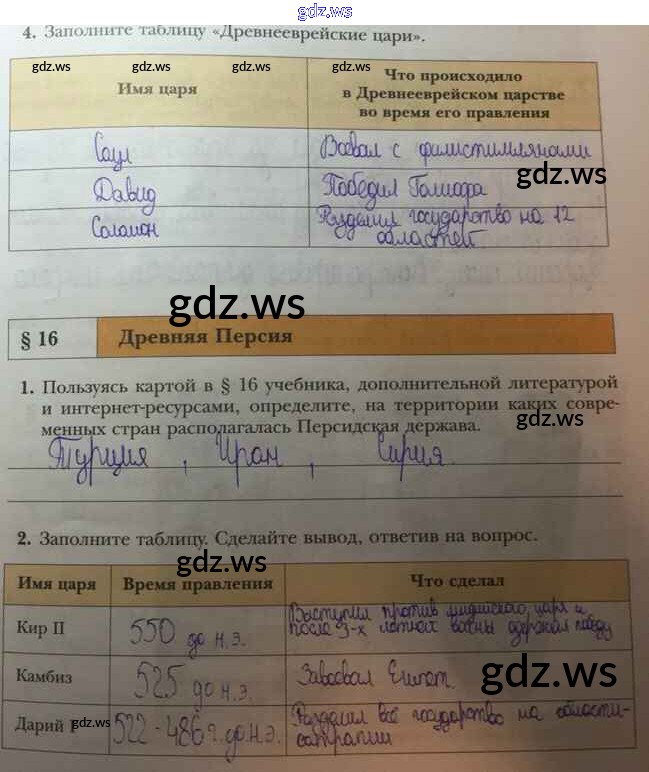 gdz.ws
4. Заполните таблицу «Древнееврейские цари».
gdz.ws gdz.ws gdz.ws gdz.ws
Имя царя
Что происходило
в Древнееврейском царстве
во время его правления
Саул
Воевал с филистимлянами
Давид
Победил Голиафа
gdz.ws
Соломон
Разделил государство на 12
областей
gdz.ws
§ 16
Древняя Персия
1. Пользуясь картой в § 16 учебника, дополнительной литературой
и интернет-ресурсами, определите, на территории каких совре-
менных стран располагалась Персидская держава.
gdz.ws
Турция, Иран, Сирия.
2. Заполните таблицу. Сделайте вывод, ответив на вопрос.
gdz.ws
Имя царя
Время правления
Что сделал
Кир II
550 до н.э.
Выступил против мидийского царя и
после 3-х летней войны одержал победу
Камбиз
525 до н.э.
Завоевал Египет.
gdz.ws
Дарий I
gdz.ws
522-486 г. до н.э.
Разделил всё государство на области-
сатрапии